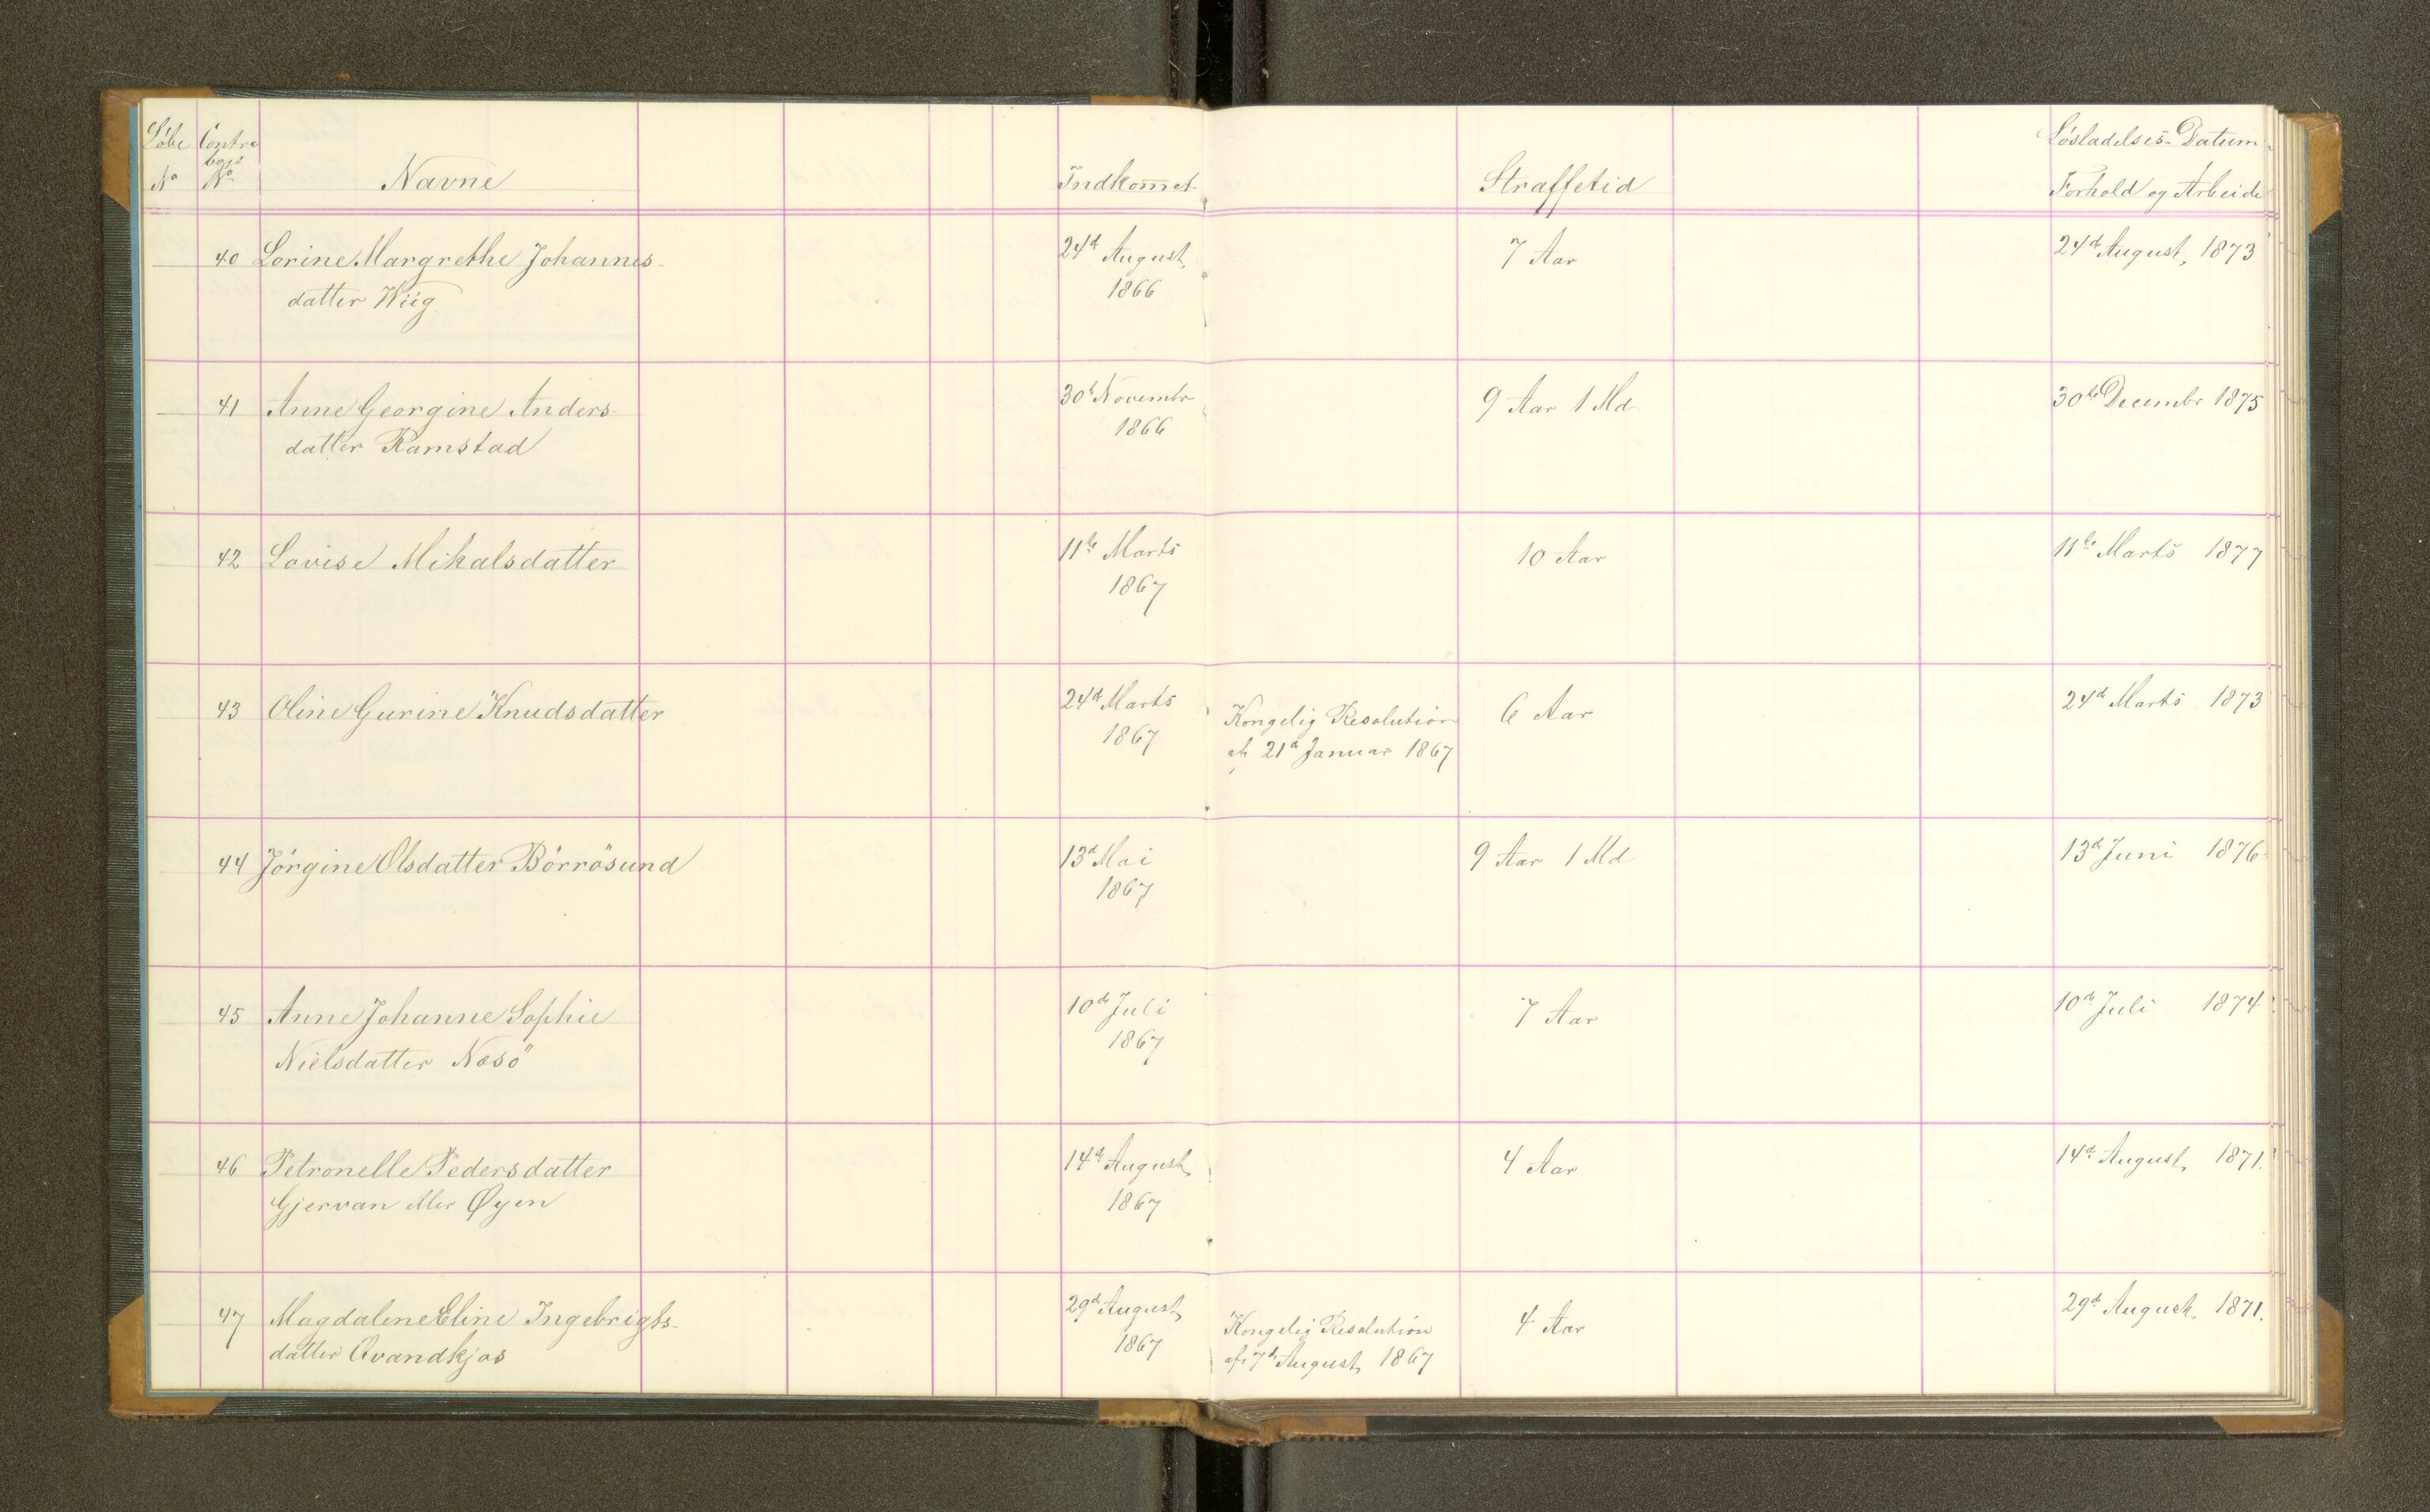 Løbe Contra Løsladelses-Datum
bogs
No No Navne Indkommet Straffetid Forhold og Arbeide
40 Lorine Margrethe Johannes- 24d August 7 Aar 24d August 1873
datter Wiig 1866
41 Anne Georgine Anders- 30te Novembr 9 Aar 1 Md 30te Decembr 1875
datter Ramstad 1866
42 Lovise Mikalsdatter 11te Marts 10 Aar 11te Marts 1877
1867
43 Oline Gurine Knudsdatter 24d Marts Kongelig Resolution 6 Aar 24d Marts 1873
1867 af 21d Januar 1867
44 Jörgine Olsdatter Börrösund 13d Mai 9 Aar 1 Md 13d Juni 1876
1867
45 Anne Johanne Sophie 10d Juli 7 Aar 10d Juli 1874
Nielsdatter Nosö 1867
46 Petronelle Pedersdatter 14d August 4 Aar 14d August 1871.
Gjervan eller Øyen 1867
47 Magdalene Eline Ingebrigts- 29d August Kongelig Resolution 4 Aar 29d August 1871.
datter Qvandkjos 1867 af 7d August 1867